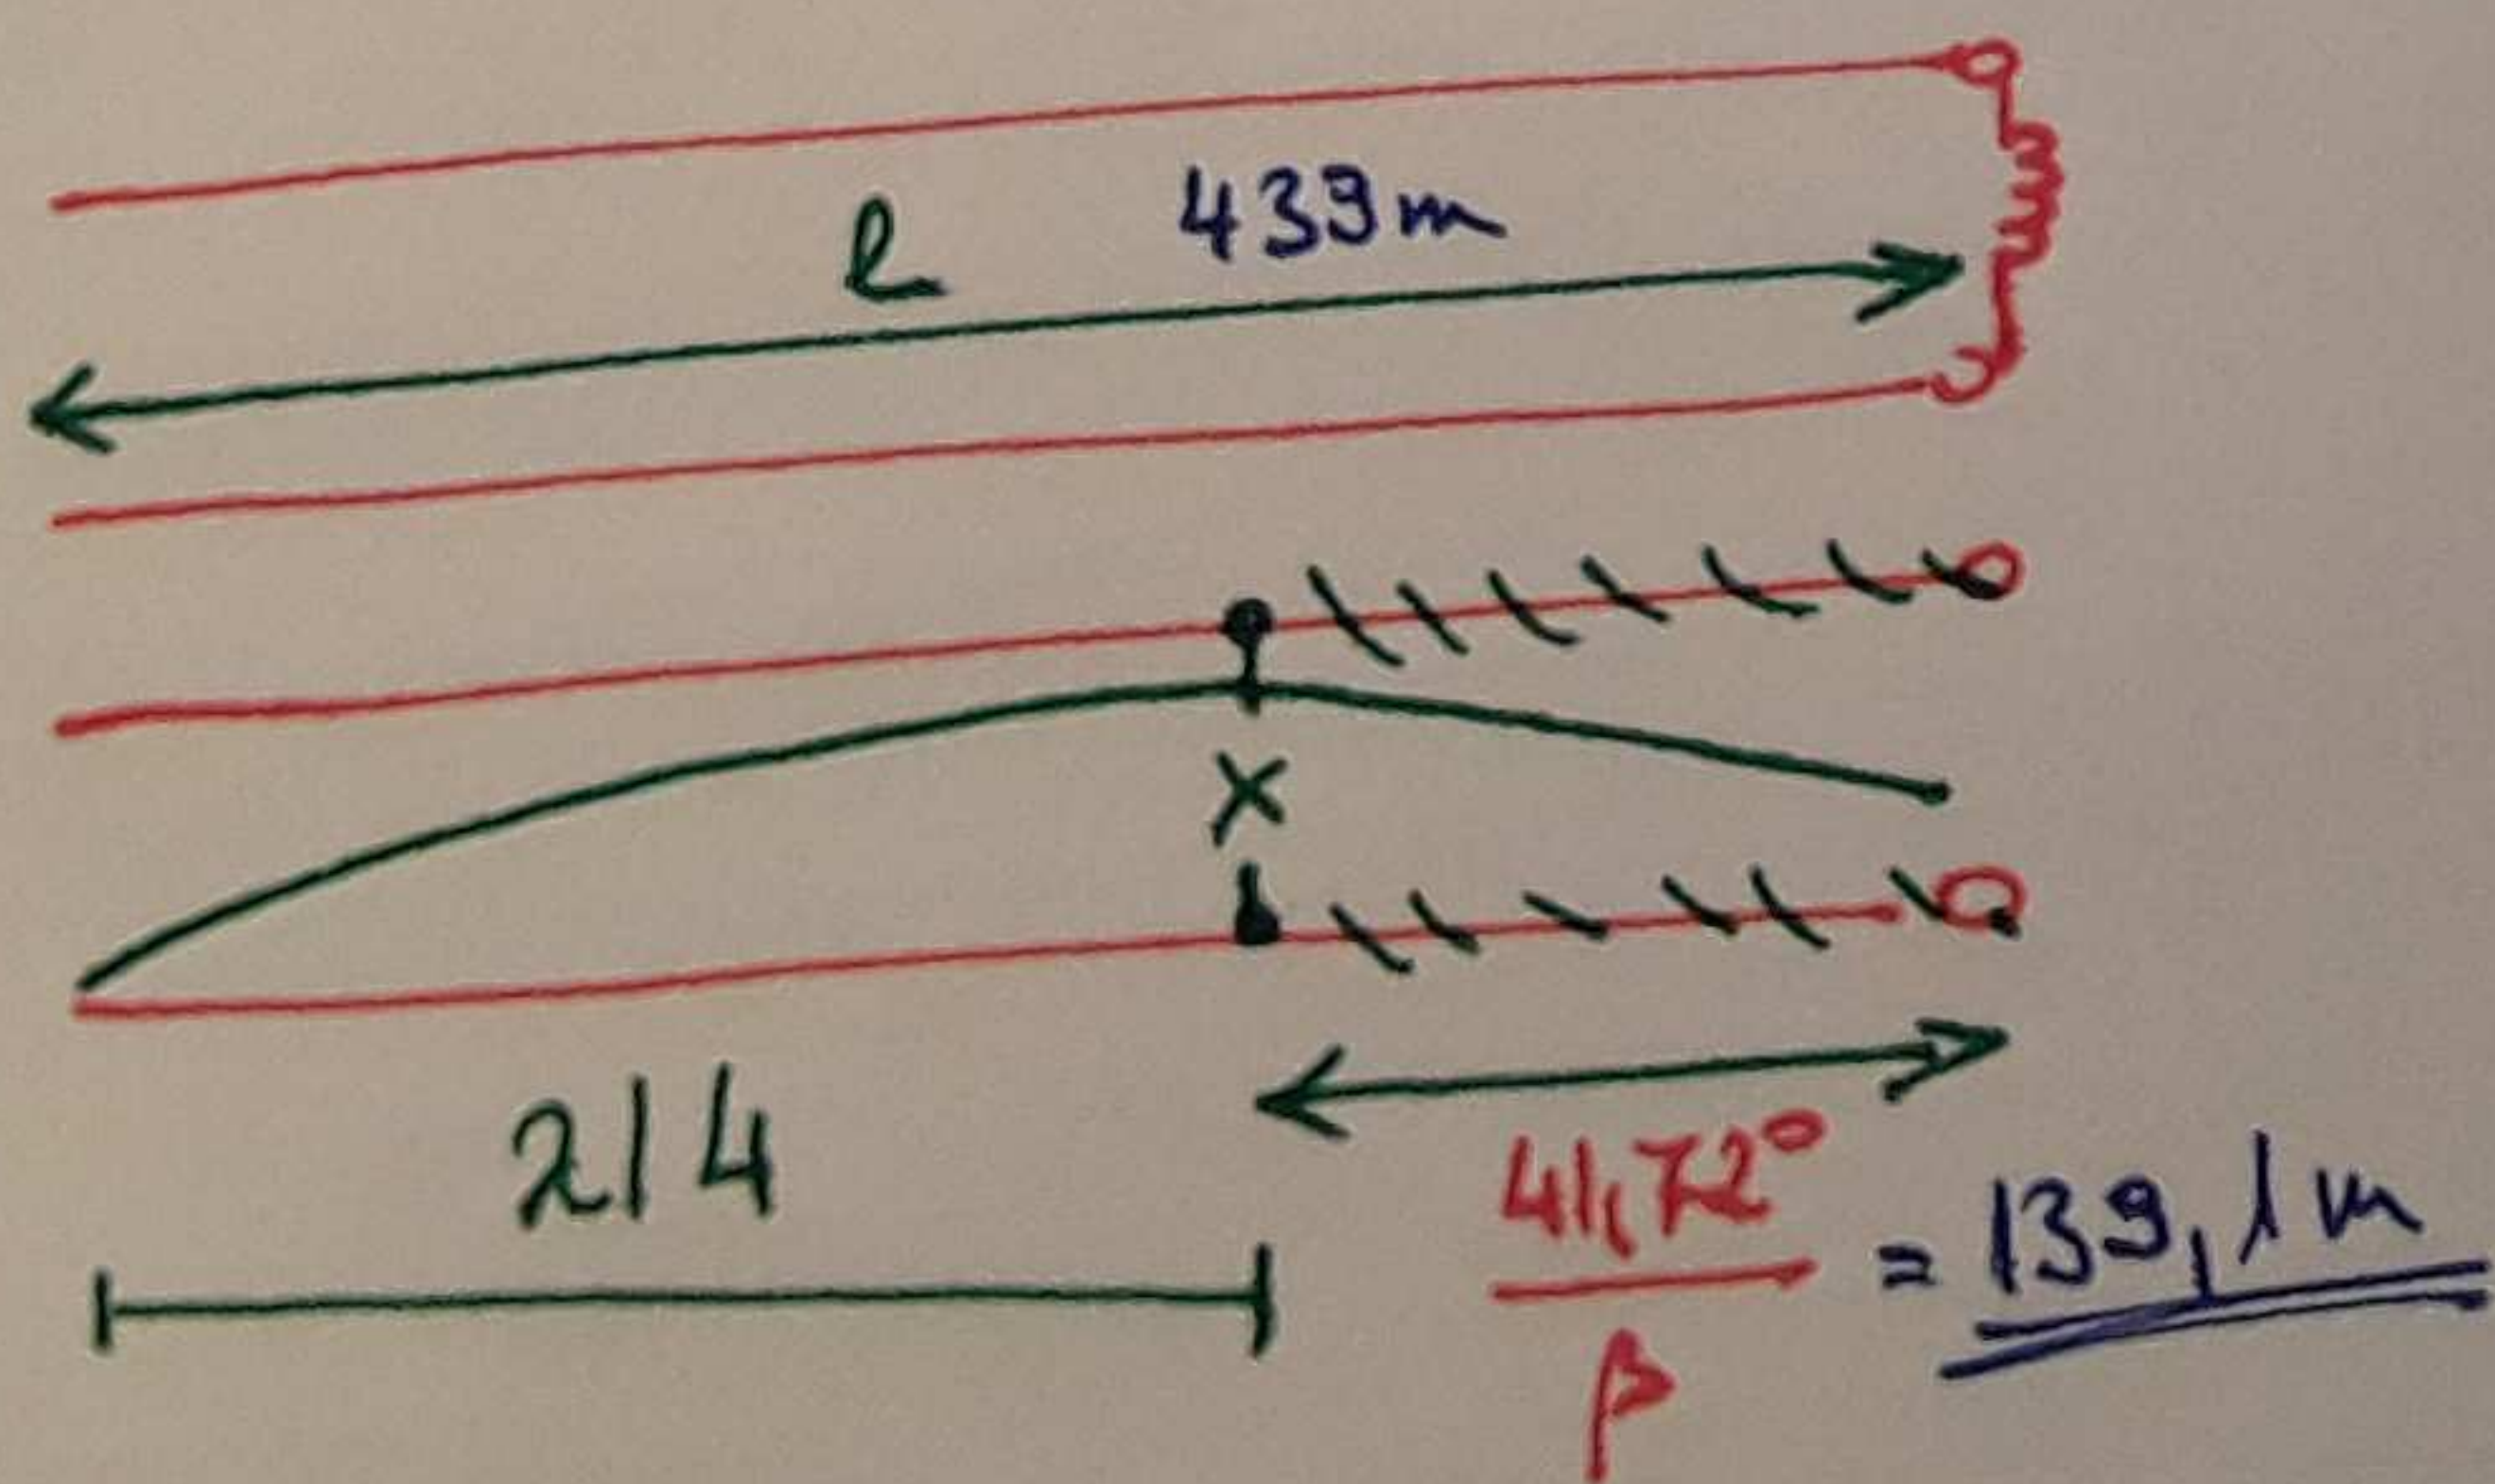 l 439m
x
λ/4
41,72°
β
= 139,1m